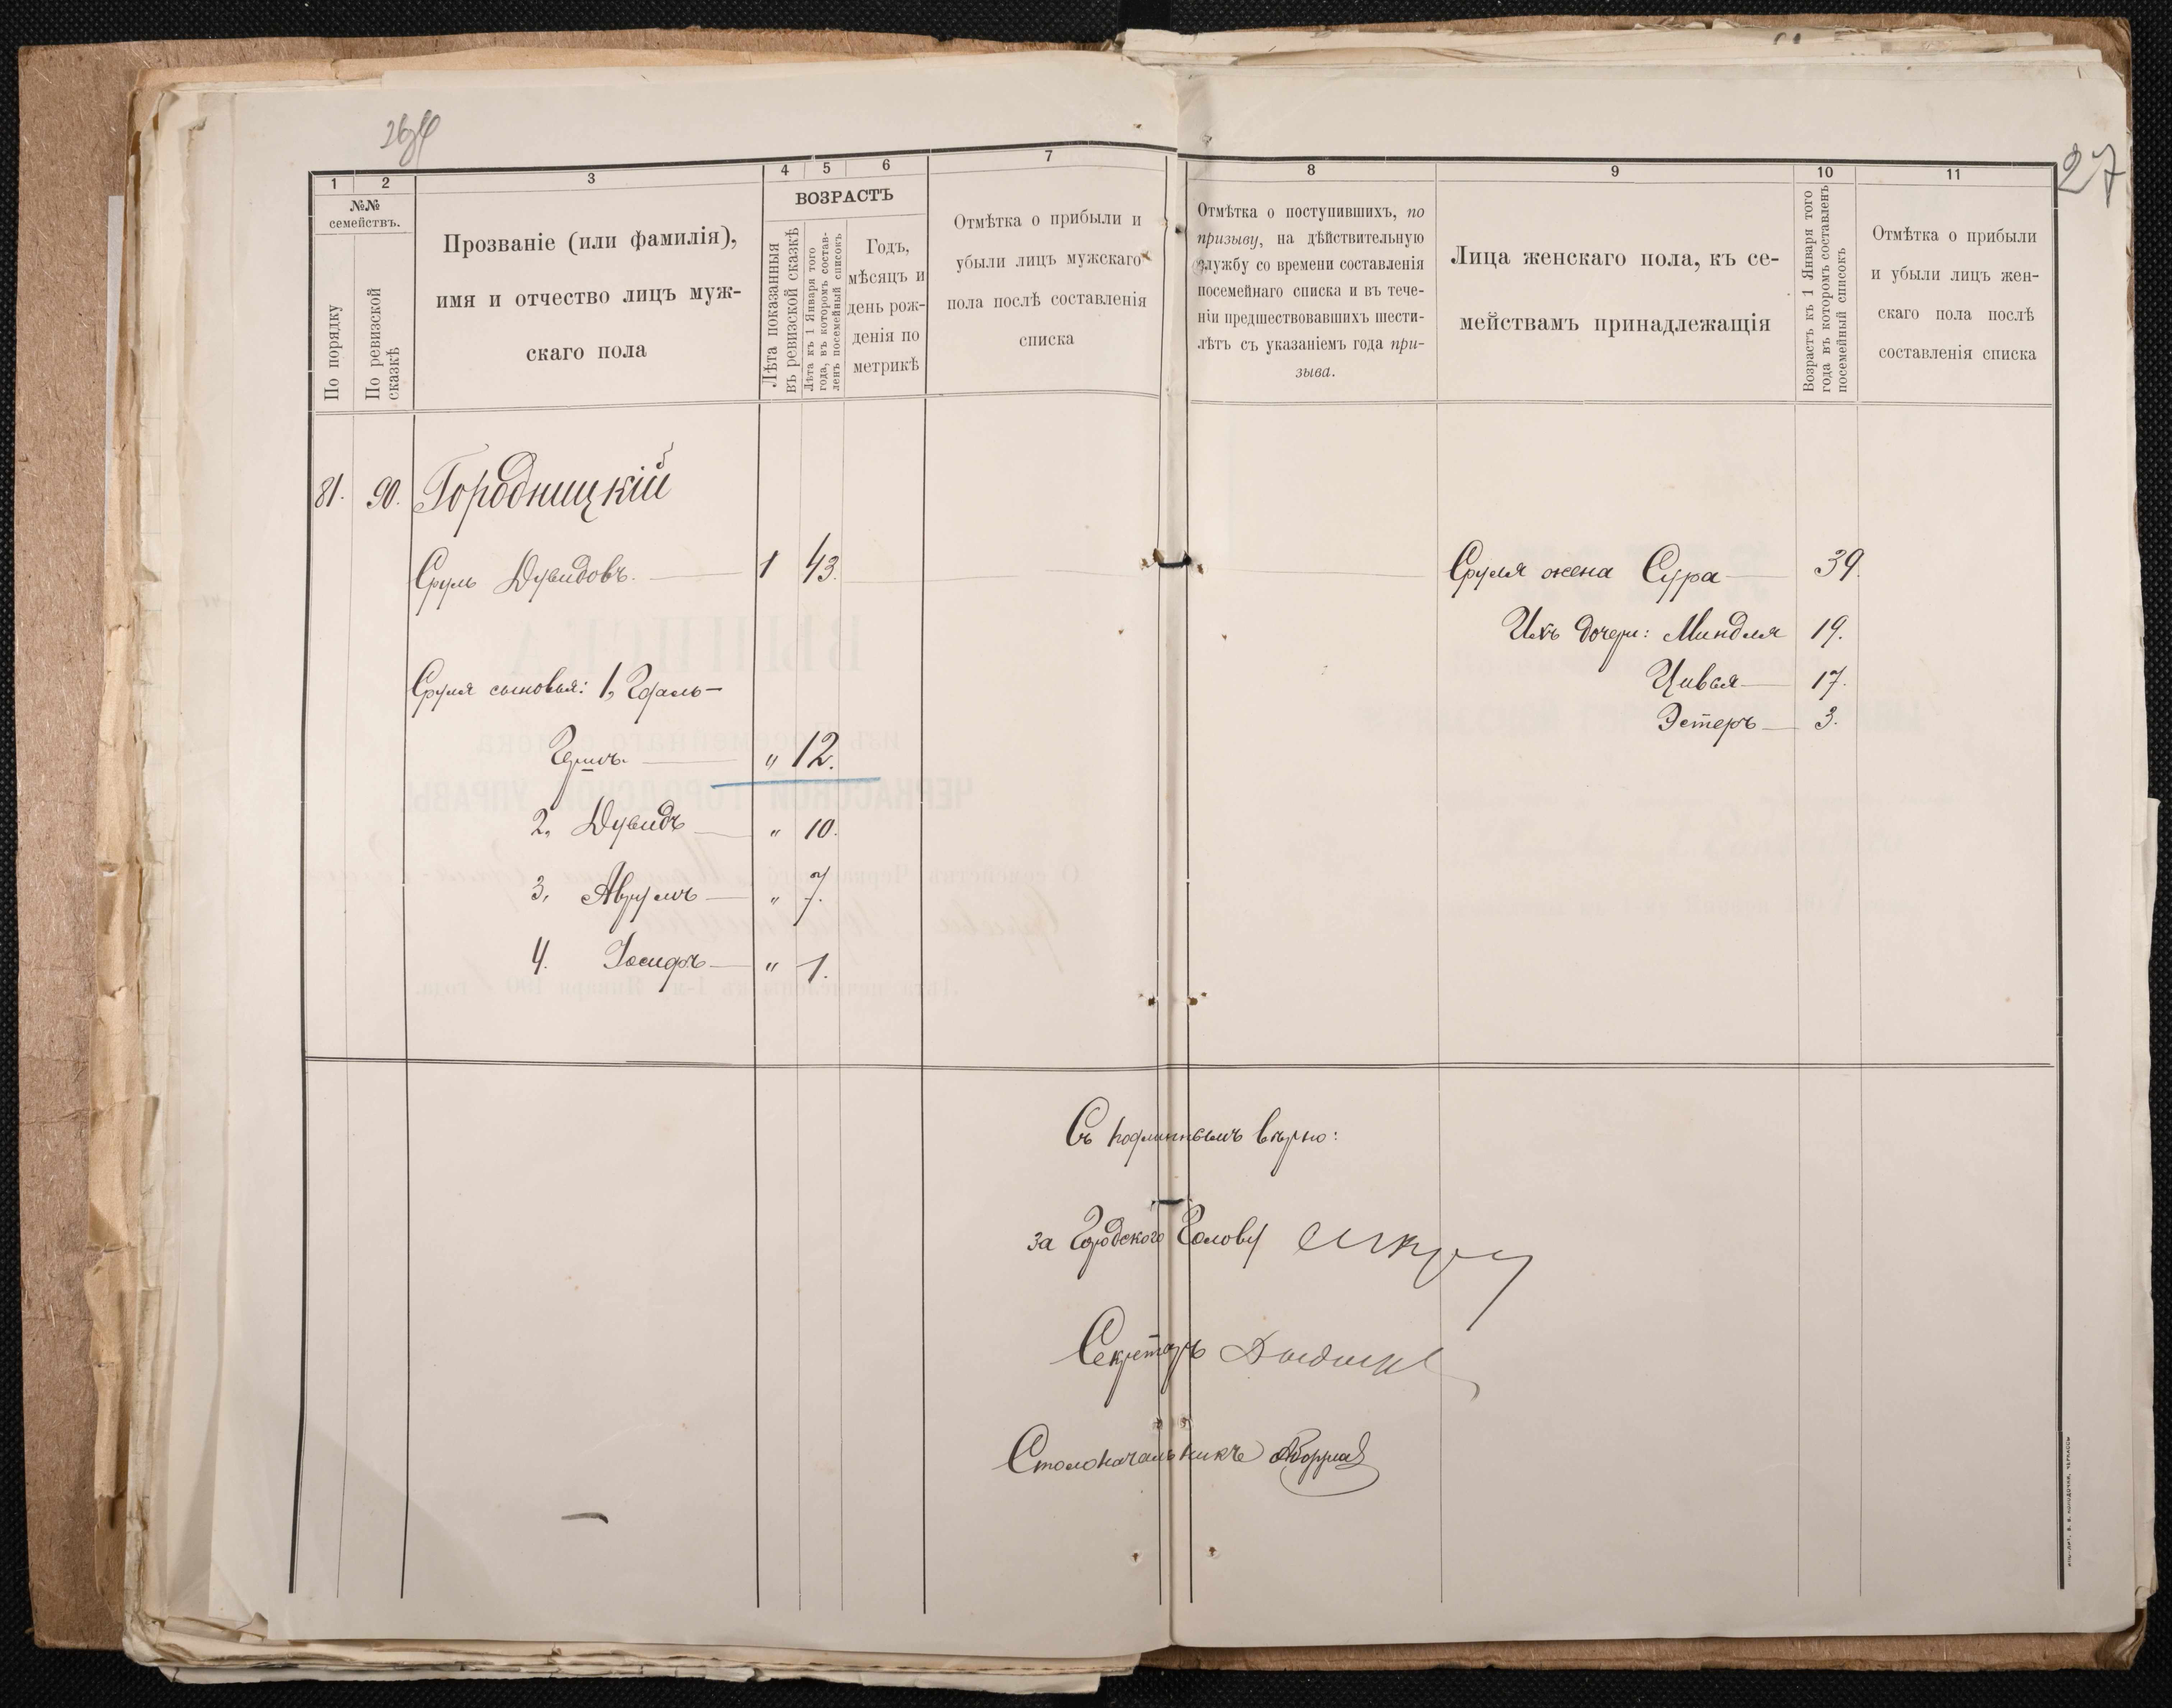 27
1
2
3
4
5
6
7
8
9
10
11
№№
семействъ.
По порядку
По ревизской
сказкѣ
Прозваніе (или фамилія),
имя и отчество лицъ муж-
скаго пола
ВОЗРАСТЪ
Лѣта показанныя
въ ревизской сказкѣ
Лѣта къ 1 Января того
года, въ которомъ состав-
ленъ посемейный списокъ
Годъ,
мѣсяцъ и
день рож-
денія по
метрикѣ
Отмѣтка о прибыли и
убыли лицъ мужскаго
пола послѣ составленія
списка
Отмѣтка о поступившихъ, по
призыву, на дѣйствительную
службу со времени составленія
посемейнаго списка и въ тече-
ніи предшествовавшихъ шести-
лѣтъ съ указаніемъ года при-
зыва.
Лица женскаго пола, къ се-
мействамъ принадлежащія
Возрастъ къ 1 Января того
года въ которомъ составленъ
посемейный списокъ
Отмѣтка о прибыли
и убыли лицъ жен-
скаго пола послѣ
составленія списка
81. 90. Городницкій
Сруль Дувидовъ. 1 43.
Сруля жена Сура 39.
Ихъ дочери: Миндля 19.
Сруля сыновья: 1, Гдаль-
Цивья 17.
Эстеръ 3.
Гершъ. " 12.
2, Дувидъ " 10.
3, Аврумъ " 7.
4. Іосифъ " 1.
Съ подлиннымъ вѣрно:
за Городского Голову
Секретарь
Столоначальникъ